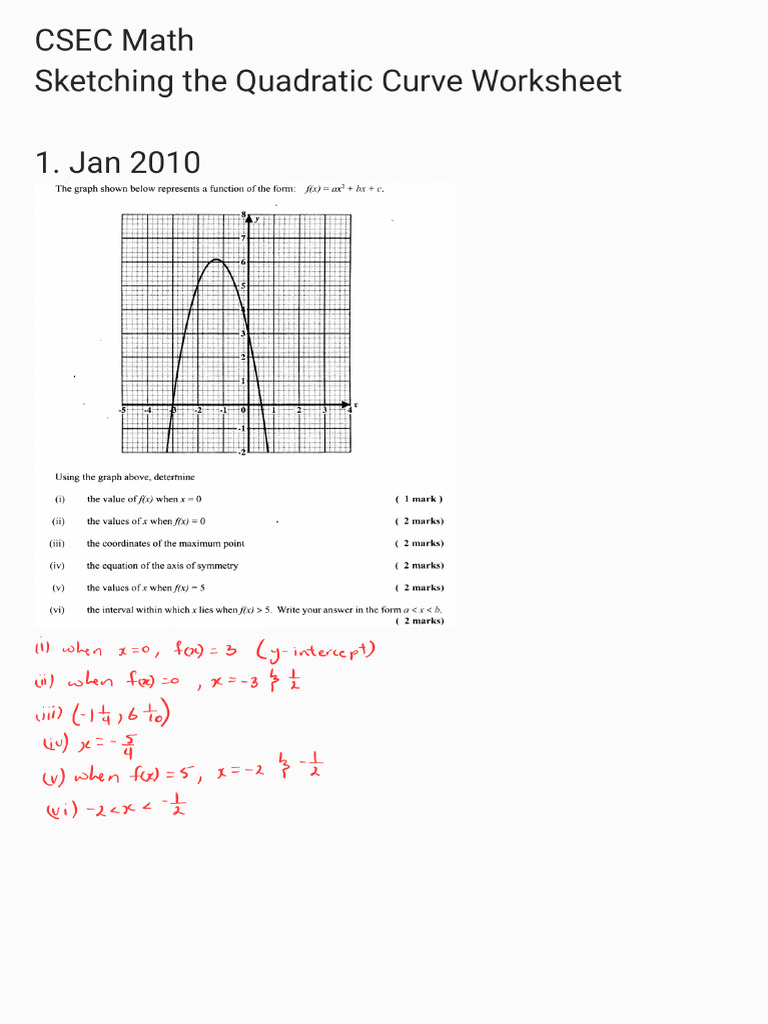 CSEC Math
Sketching the Quadratic Curve Worksheet
1. Jan 2010
The graph shown below represents a function of the form: f(x) = ax² + bx + c.
8 y
7
6
5
3
2
1
-5 -4 -3 -2 -1 0 1 2 3 4 x
-1
-2
Using the graph above, determine
(i) the value of f(x) when x = 0 ( 1 mark )
(ii) the values of x when f(x) = 0 ( 2 marks)
(iii) the coordinates of the maximum point ( 2 marks)
(iv) the equation of the axis of symmetry ( 2 marks)
(v) the values of x when f(x) = 5 ( 2 marks)
(vi) the interval within which x lies when f(x) > 5. Write your answer in the form a < x < b.
( 2 marks)
(i) when x=0, f(x) = 3 (y-intercept)
(ii) when f(x)=0, x = -3 & 1/2
(iii) (-1 1/4, 6 1/10)
(iv) x = -5/4
(v) when f(x) = 5, x = -2 & -1/2
(vi) -2 < x < -1/2